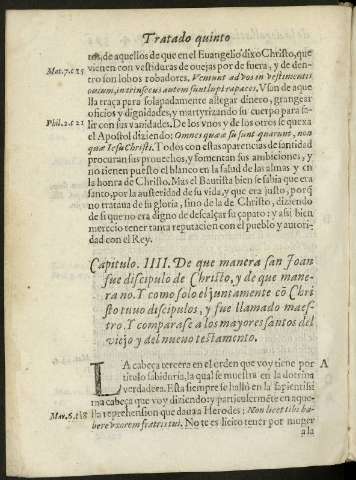 Tratado quinto
tos, de aquellos de que en el Euangelio dixo Christo, que
Mat.7.c.15
vienen con vestiduras de ouejas por de fuera, y de den-
tro son lobos robadores. Veniunt ad vos in vestimentis
ouium, intrinsecus autem sunt lupi rapaces. Vsun de aque
lla traça para solapadamente allegar dinero, grangear
oficios y dignidades, y martyrizando su cuerpo para sa-
Phil.2.c.21
lir con sus vanidades. De los vnos y de los otros se quexa
el Apostol diziendo: Omnes quæ sua sunt quærunt, non
quæ Iesu Christi. Todos con estas aparencias de santidad
procuran sus prouechos, y fomentan sus ambiciones, y
no tienen puesto el blanco en la salud de las almas y en
la honra de Christo. Mas el Bautista bien se sabia que era
santo, por la austeridad de su vida, y que era justo, porq̃
no trataua de su gloria, sino de la de Christo, diziendo
de si que no era digno de descalçar su çapato: y assi bien
merecio tener tanta reputacion con el pueblo y autori-
dad con el Rey.
Capitulo. IIII. De que manera san Joan
fue discipulo de Christo, y de que mane-
ra no. Y como solo el juntamente cõ Chri
sto tuuo discipulos, y fue llamado maes-
tro. Y comparase a los mayores santos del
viejo y del nueuo testamento.
LA cabeça tercera en el orden que voy tiene por
A
titulo sabiduria, la qual se muestra en la dotrina
verdadera. Esta siempre se hallò en la sapientissi
ma cabeça que voy diziendo: y particularmẽte en aque-
Mar.6.c.18
lla reprehension que daua a Herodes; Non licet tibi ha-
bere vxorem fratris tui. No te es licito tener por muger
a la